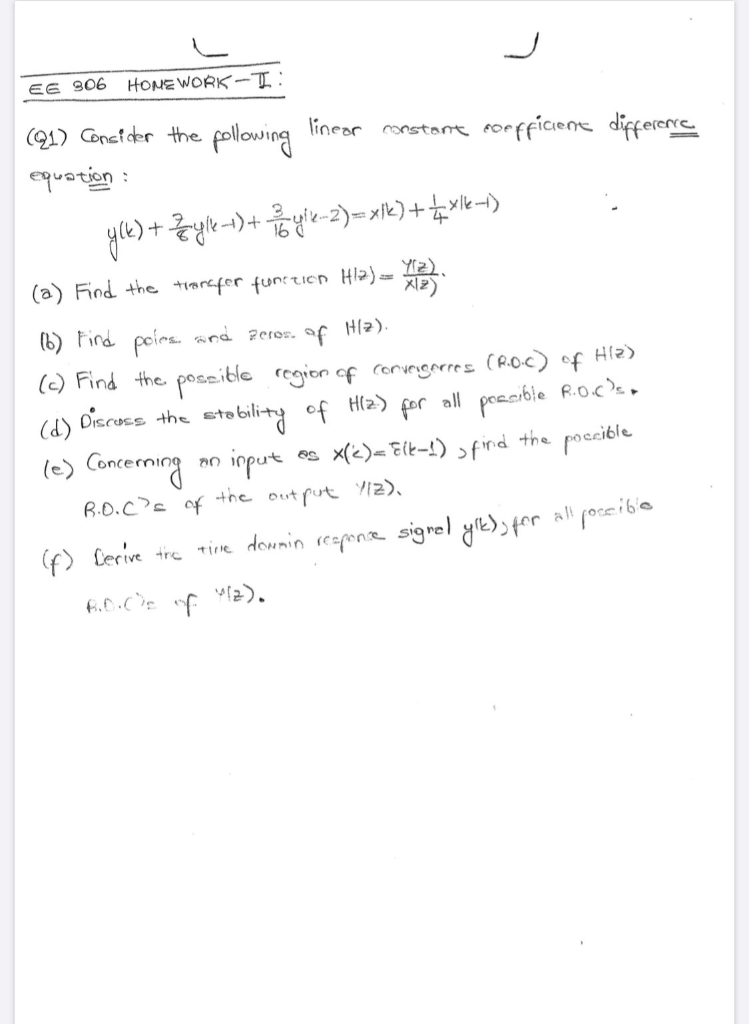 EE 306 HOMEWORK-II:
(Q1) Consider the following linear constant coefficient difference
equation :
y(k) + 7/8 y(k-1) + 3/16 y(k-2) = x(k) + 1/4 x(k-1)
(a) Find the transfer function H(z) = Y(z)/X(z).
(b) Find poles and zeros of H(z).
(c) Find the possible region of convergences (R.O.C) of H(z)
(d) Discuss the stability of H(z) for all possible R.O.C's.
(e) Concerning an input as x(k) = δ(k-1), find the possible
R.O.C's of the output Y(z).
(f) Derive the time domain response signal y(k), for all possible
R.O.C's of Y(z).